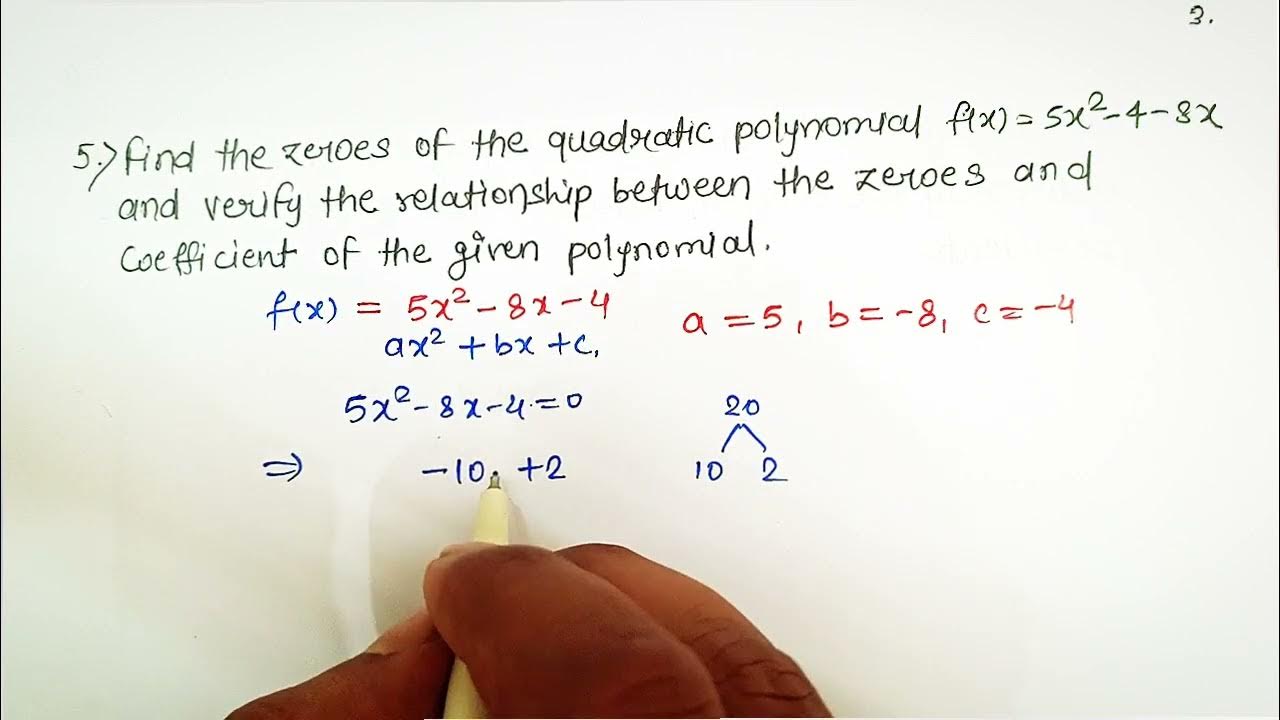 3.
5.) find the zeroes of the quadratic polynomial f(x) = 5x² - 4 - 8x
and verify the relationship between the zeroes and
coefficient of the given polynomial.
f(x) = 5x² - 8x - 4 a = 5, b = -8, c = -4
ax² + bx + c,
5x² - 8x - 4 = 0 20
⇒ -10, +2 10 2